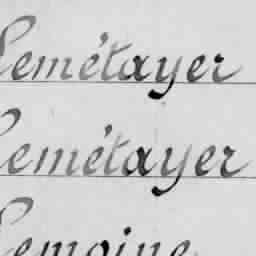 Lemétayer
Lemétayer
Lemoine